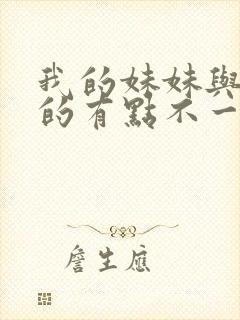 我的妹妹與
的有點不一
詹生應